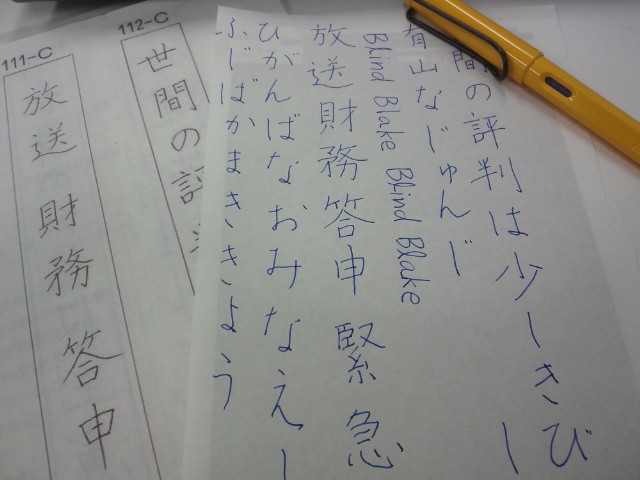 間の評判は少しきび
し
有山なじゅんじ
Blind Blake Blind Blake
放送財務答申緊急
ひがんばなおみなえし
ふじばかまききょう
112-C
世間の評
111-C
放送財務答申